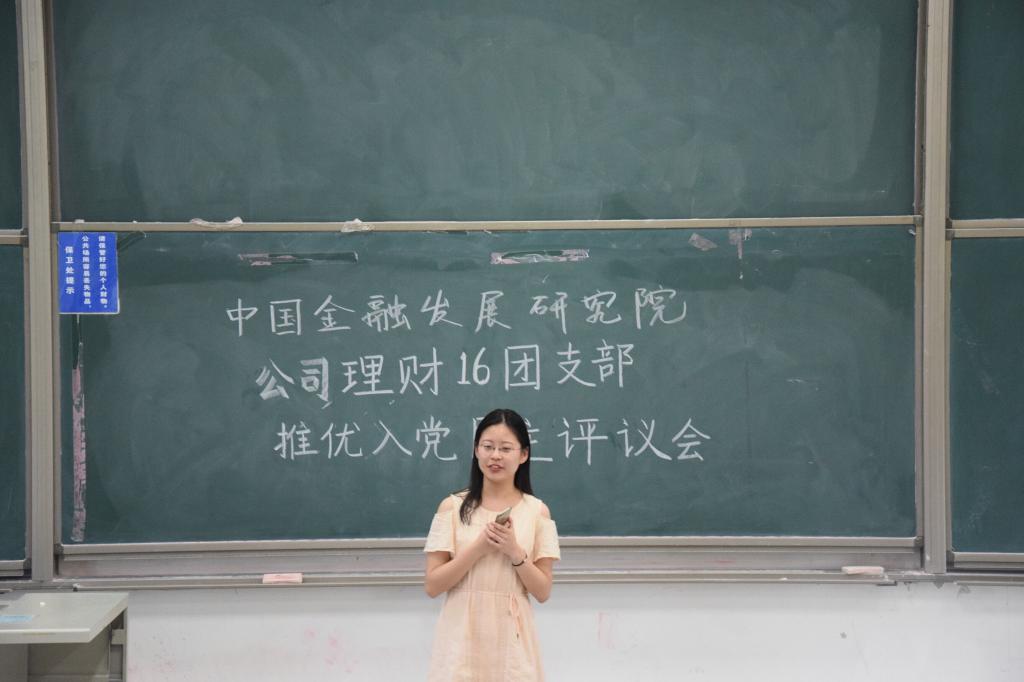 请保管好您的个人财物。
公共场所容易丢失物品，
保卫处提示
中国金融发展研究院
公司理财16团支部
推优入党 主评议会